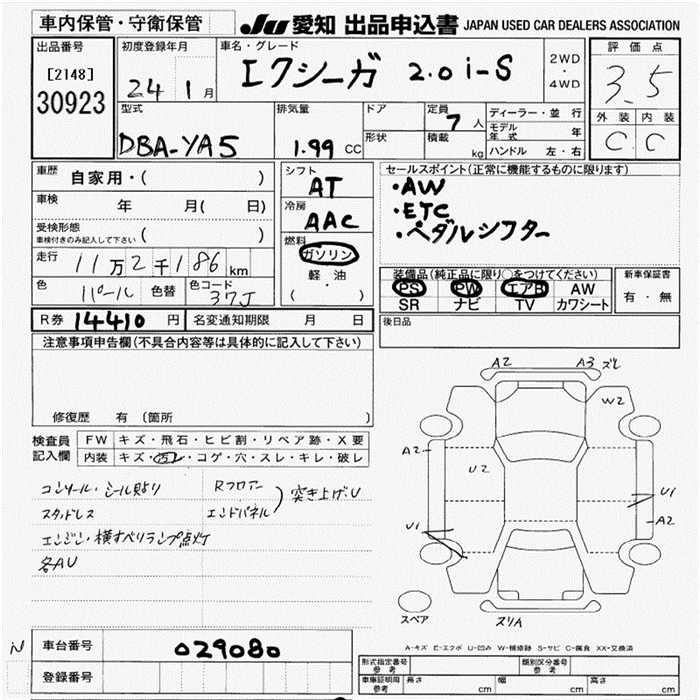 車内保管・守衛保管
JU 愛知 出品申込書 JAPAN USED CAR DEALERS ASSOCIATION
出品番号
[2148]
30923
初度登録年月
24 1月
車名・グレード
エクシーガ 2.0i-S
2WD
・
4WD
評価点
3.5
外装 内装
C C
型式
DBA-YA5
排気量
1.99 CC
ドア
形状
定員
7人
積載
kg
ディーラー・並行
モデル年式 年
ハンドル 左・右
車歴
自家用・( )
車検
年 月( 日)
受検形態
車検付きのみ記入して下さい ( )
走行
11万2千186km
色
パール
色替
色コード
37J
シフト
AT
冷房
AAC
燃料
ガソリン
軽油
( )
セールスポイント(正常に機能するものに限ります)
・AW
・ETC
・ペダルシフター
装備品(純正品に限り○をつけてください)
PS PW エアB AW
SR ナビ TV カワシート
新車保証書
有・無
R券 14410円
名変通知期限 月 日
後日品
注意事項申告欄(不具合内容等は具体的に記入して下さい)
修復歴 有(箇所 )
検査員
記入欄
FW キズ・飛石・ヒビ割・リペア跡・X要
内装 キズ・汚レ・コゲ・穴・スレ・キレ・破レ
コンソール・シール貼り
スタッドレス
エンジン・横すべりランプ点灯
各AU
Rフロアー
エンドパネル
突き上げU
A2
A3 ズレ
W2
A2
U2
U1
A2
U1
スペア
スリA
A-キズ E-エクボ U-凹み W-補修跡 S-サビ C-腐食 XX-交換済
車台番号
029080
登録番号
型式指定番号
参考
類別区分番号
参考
車庫証明用
参考
長さ cm
幅 cm
高さ cm